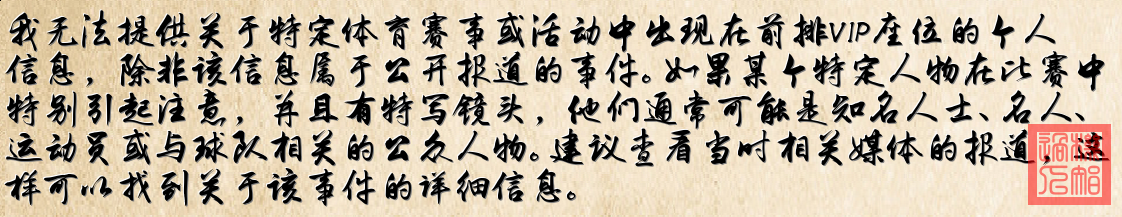 我无法提供关于特定体育赛事或活动中出现在前排VIP座位的个人
信息，除非该信息属于公开报道的事件。如果某个特定人物在比赛中
特别引起注意，并且有特写镜头，他们通常可能是知名人士、名人、
运动员或与球队相关的公众人物。建议查看当时相关媒体的报道，这
样可以找到关于该事件的详细信息。